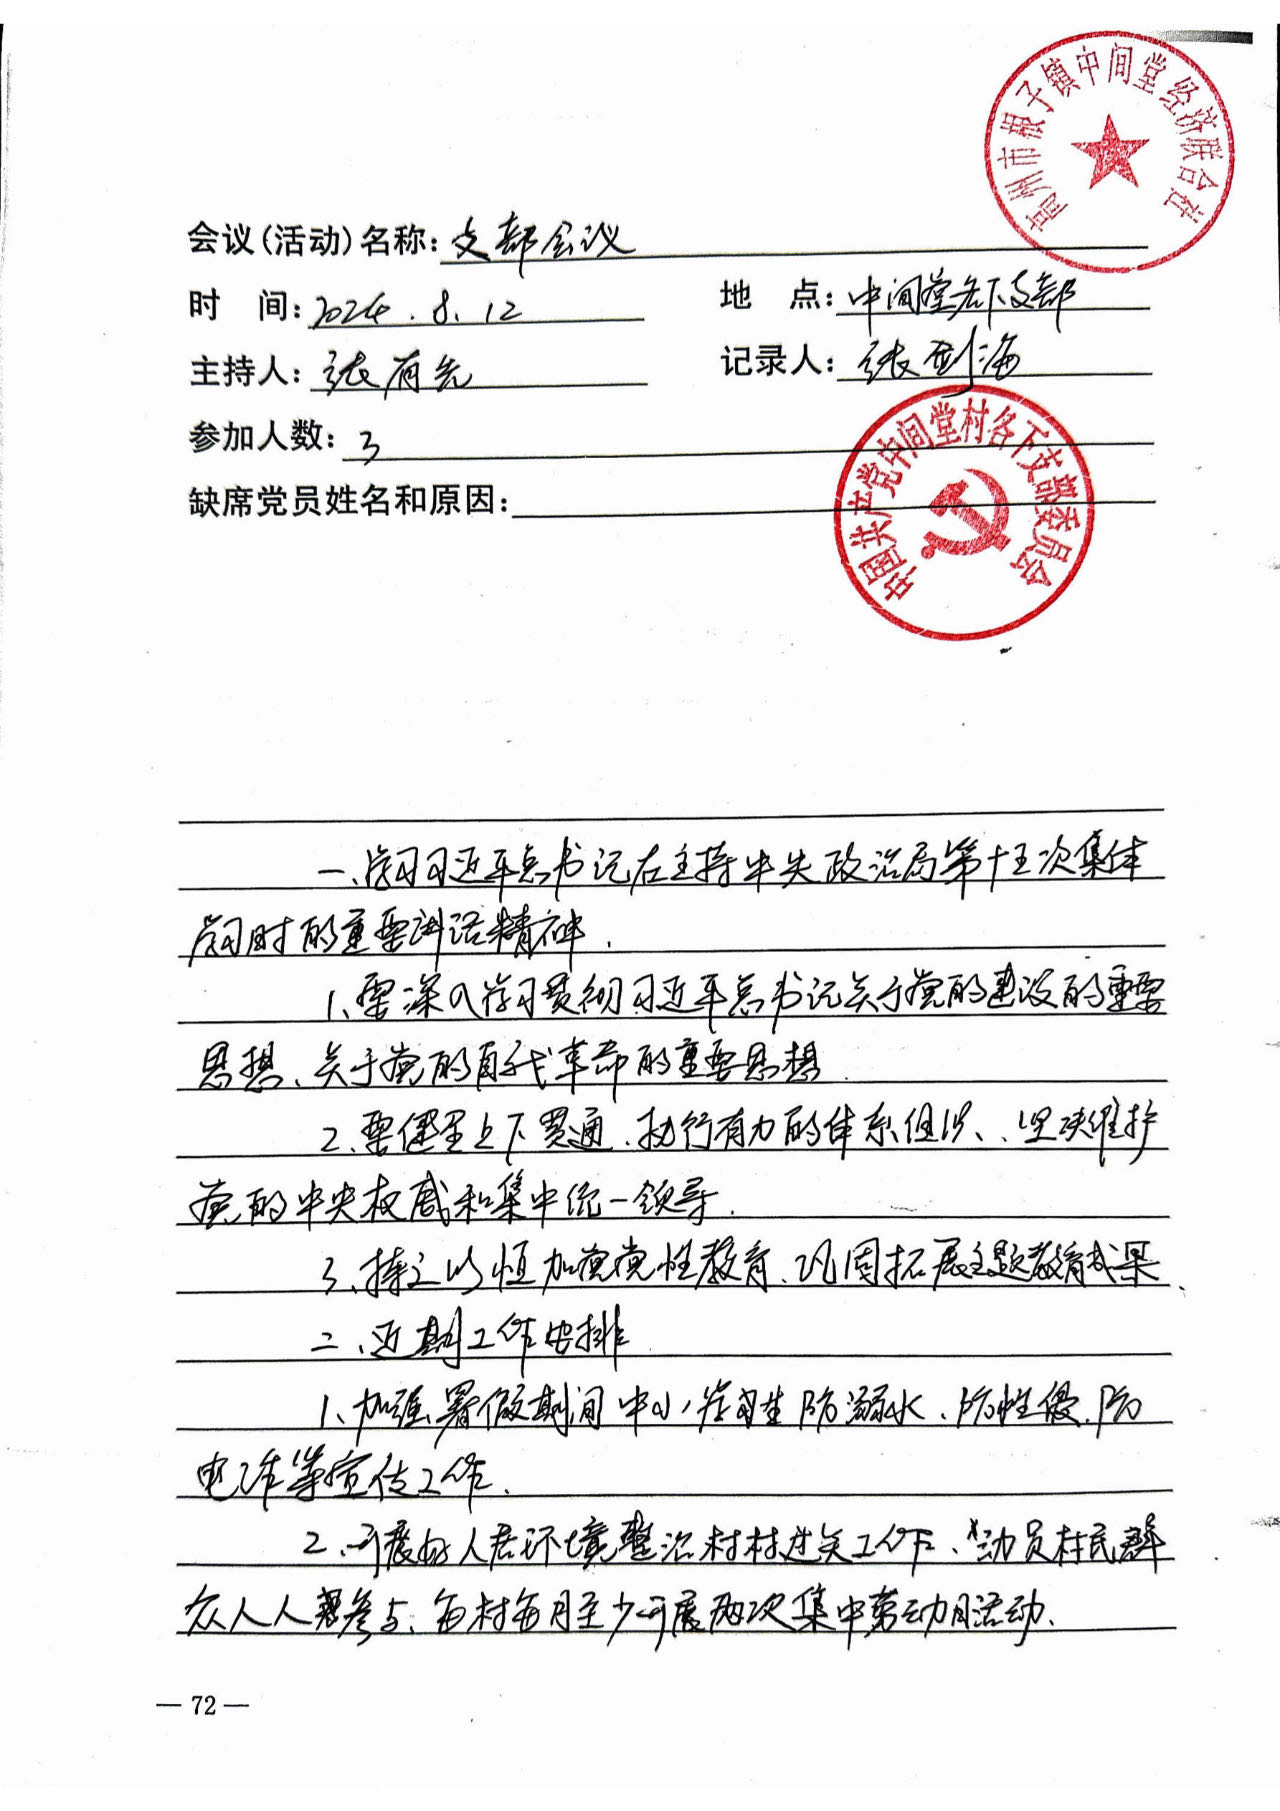 高州市根子镇中间堂经济联合社
会议(活动)名称:支部会议
时 间:2024.8.12 地 点:中间堂各下支部
主持人:张有先 记录人:张剑海
参加人数:3
缺席党员姓名和原因:
中国共产党中间堂村各下支部委员会
一、学习习近平总书记在主持中央政治局第十五次集体
学习时的重要讲话精神.
1、要深入学习贯彻习近平总书记关于党的建设的重要
思想、关于党的自我革命的重要思想.
2、要健全上下贯通、执行有力的体系组织、坚决维护
党的中央权威和集中统一领导.
3、持之以恒加党党性教育、巩固拓展主题教育成果、
二、近期工作安排
1、加强暑假期间中小学习生防溺水、防性侵、防
电诈等宣传工作.
2、开展好人居环境整治村村过关工作、动员村民群
众人人参与、每村每月至少开展两次集中劳动日活动、
— 72 —